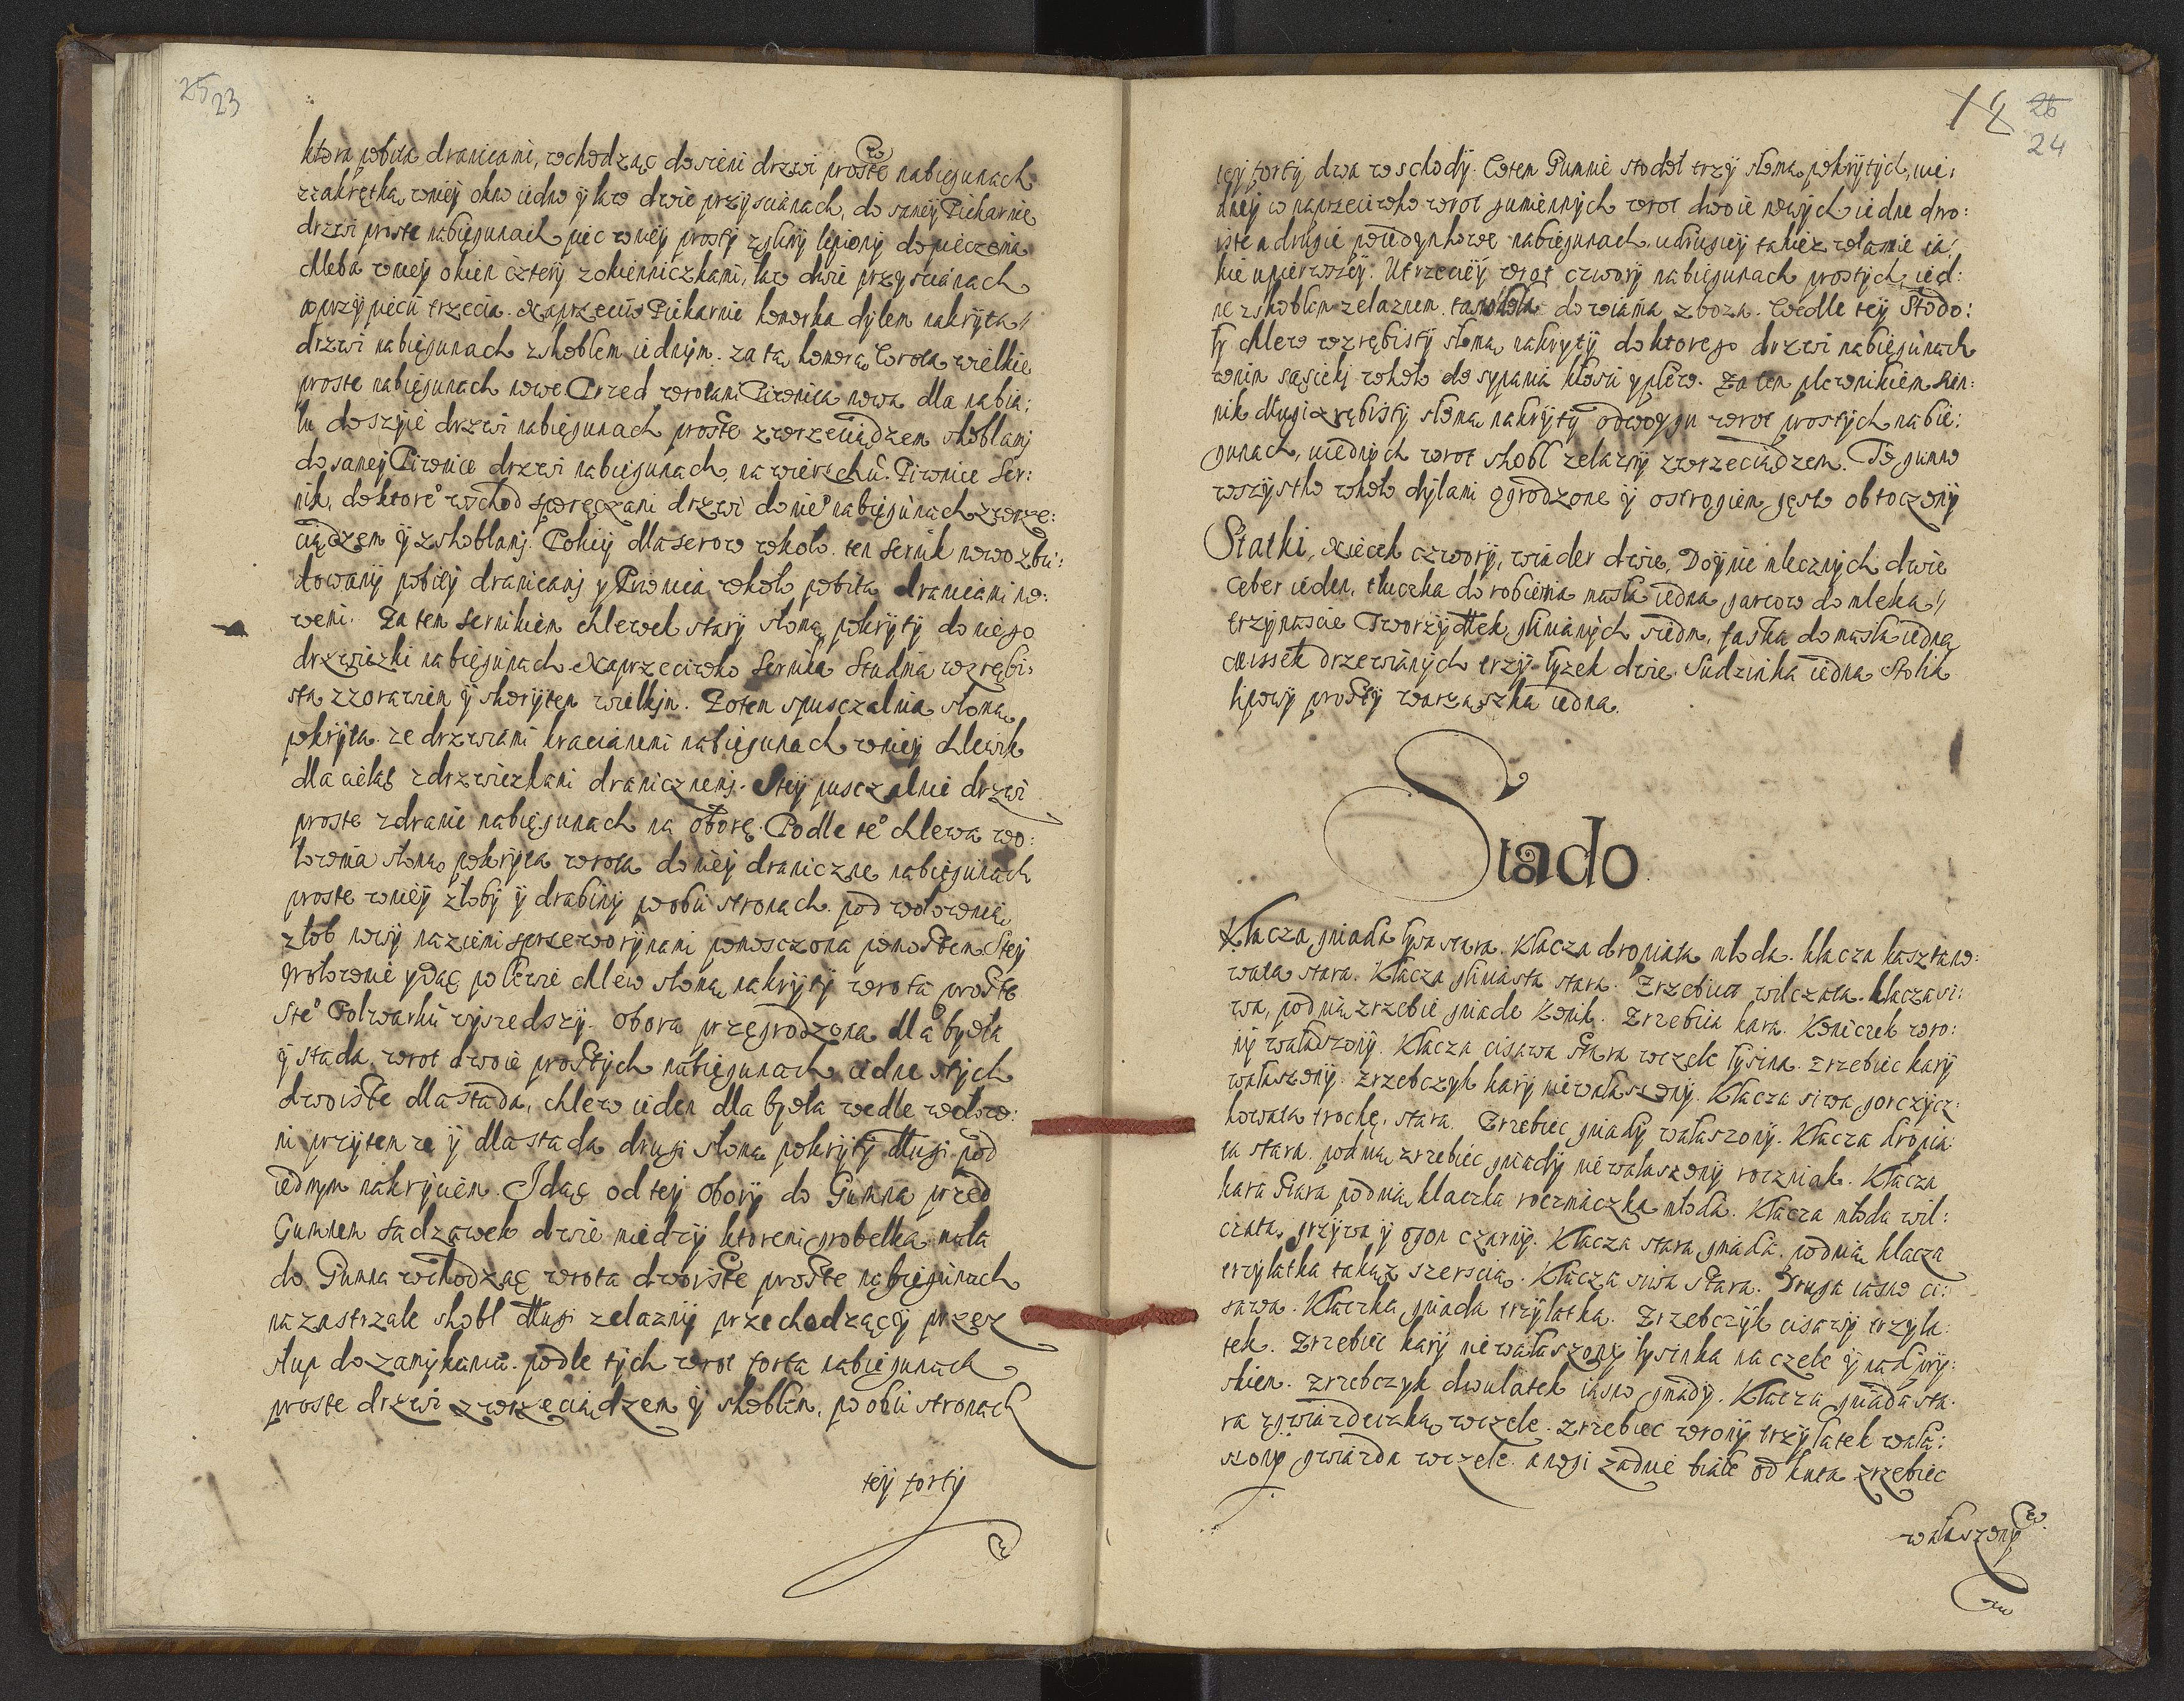 25 23
ktora pobita dranicami, wchodząc do sieni drzwi proste nabiegunach
zzakrętką, wniey okno iedno ÿ ław dwie przyscianach, do sameÿ Piekarnie
drzwi proste nabiegunach piec wnieÿ prostÿ zglinÿ lepionÿ do pieczenia
chleba wnieÿ okien czterÿ zokienniczkami, ław dwie przÿscianach
a przÿ piecu trzecia. Naprzeciw Piekarnie komorka dylem nakrÿta,
drzwi nabiegunach zskoblem iednÿm. za tą komorą Wrota wielkie
proste nabiegunach nowe. Przed wrotami Piwnica nowa dla nabia:
łu do szÿie drzwi nabiegunach proste zwrzeciądzem skoblami
do sameÿ Piwnice drzwi nabiegunach, na wierzchu Piwnice Ser:
nik, do ktore° wschod sporęczami drzwi do nie° nabiegunach zwrze:
ciądzem ÿ zskoblami. Policÿ dla serow wkoło. ten sernik nowo zbu:
dowanÿ pobitÿ dranicami y Piwnica wkoło pobita dranicami no:
wemi. Za tem sernikiem chlewek starÿ słomą pokrÿtÿ do niego
drzwiczki nabiegunach Naprzeciwko Sernika Studnia wzrębi:
sta zzorawiem ÿ korÿtem wielkim. Potem spusczalnia słomą
pokrÿta ze drzwiami kracianemi nabiegunach wnieÿ chlewik
dla cieląt zdrzwiczkami dranicznemi. Steÿ pusczalnie drzwi
proste zdranic nabiegunach na oborę. Podle te° chlewa wo:
łownia słomą pokrÿta wrota do nieÿ draniczne nabiegunach
proste wnieÿ złobÿ ÿ drabinÿ po obu stronach. pod wołownią
złob nowÿ naziemi sprzeworÿnami pomosczona pomostem Steÿ
wołownie ydąc po lewie chlew słomą nakrÿtÿ wrota proste
Ste° Folwarku wÿszedszÿ. obora przegrodzona dla bÿdła
ÿ stada, wrot dwoie prostÿch nabiegunach iedne stÿch
dwoiste dla stada, chlew ieden dla bydła wedle wołow:
ni przytem ze ÿ dla stada drugi słomą pokrÿtÿ długi pod
iednym nakryciem. Idąc od teÿ oborÿ do Gumna przed
Gumnem sadzawek dwie miedzÿ ktoremi grobelka mała
do Gumna wchodząc wrota dwoiste proste nabiegunach
na zastrzale skobl długi zelaznÿ przechodzącÿ przez
słup do zamÿkania. podle tÿch wrot forta nabiegunach
proste drzwi zwrzeciądzem ÿ skoblem, po obu stronach
teÿ fortÿ
26
24
teÿ fortÿ dwa wschodÿ. Wtem Gumnie stodoł trzÿ słomą pokrÿtÿch, wie:
dneÿ naprzeciwko wrot gumiennÿch wrot dwoie nowÿch iedne dwo:
iste a drugie poiedynkowe nabiegunach, udrugieÿ takiez właśnie ia:
kie upierwszeÿ. Utrzecieÿ wrot czworÿ nabiegunach prostÿch, ied:
ne zskoblem zelaznem. do wiania zboza. Wedle teÿ Stodo:
łÿ chlew wzrębistÿ słomą nakrytÿ do ktorego drzwi nabiegunach
wnim sąsieki wkoło do sypania kłosi y plew. Za tem plewnikiem
długi zrębistÿ słomą nakrÿtÿ odwoygu wrot prostÿch nabie:
gunach, uiednÿch wrot skobl zelaznÿ zwrzeciądzem. To gumno
wszÿstko wkoło dÿlami ogrodzone ÿ ostrogiem gęsto obtoczonÿ
Statki, Niecek czworÿ, wiader dwie, Doÿnic mlecznÿch dwie
Ceber ieden, tłuczka do robienia masła iedna, garcow do mleka,
trzÿnascie Tworzÿdłek glinianÿch siedm, faska do masła iedna
Missek drzewianÿch trzÿ łyzek dwie. Sudzinka iedna stolik
lipowÿ prostÿ warząszka iedna.
Stado
Klacza gniada łysa stara. Klacza dropiata młoda. klacza kasztano:
wata stara. Klacza gliniasta stara. Zrzebica wilczata. klacza si:
wa, pod nią zrzebie gniade Konik. Zrzebica kara. Koniczek wro:
nÿ wałaszonÿ. Klacza cisawa stara wczele łysina. zrzebiec karÿ
wałaszonÿ. zrzebczyk karÿ niewałaszonÿ. Klacza siwa gorczÿcz:
kowata trochę, stara. Zrzebiec gniadÿ wałaszonÿ. Klacza dropia:
ta stara. pod nią zrzebiec gniadÿ niewałaszonÿ roczniak. Klacza
kara stara pod nią klaczka roczniaczka młoda. Klacza młoda wil:
czata, grzÿwa ÿ ogon czarnÿ. Klacza stara gniada. pod nią klacza
trzÿlatka takąz szerscią. Klacza siwa stara. Druga iasno ci:
sawa. Klaczka gniada trzÿlatka. Zrzebczÿk cisawÿ trzÿla:
tek. Zrzebiec karÿ niewałaszonÿ łysinka na czele ÿ nad pÿ:
skiem. zrzebczyk dwulatek iasno gniadÿ. Klacza gniada sta:
ra zgwiazdeczką wczele. zrzebiec wronÿ trzÿlatek wała:
szonÿ gwiazda wczele. a nogi zadnie białe od kuta zrzebiec
wałaszonÿ